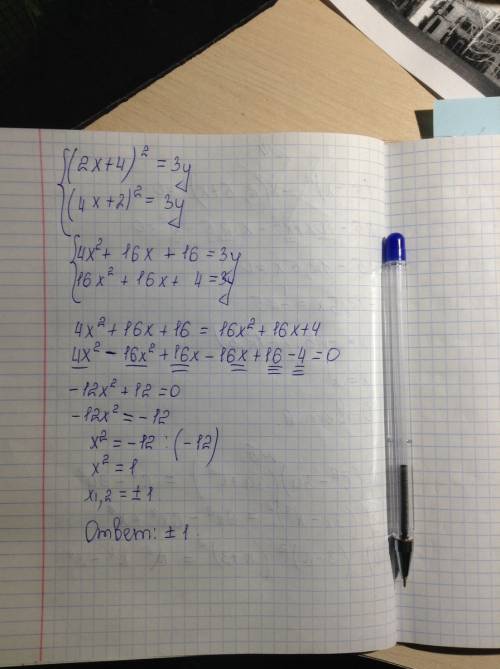 (2x+4)² = 3y
(4x+2)² = 3y
4x² + 16x + 16 = 3y
16x² + 16x + 4 = 3y
4x² + 16x + 16 = 16x² + 16x + 4
4x² - 16x² + 16x - 16x + 16 - 4 = 0
-12x² + 12 = 0
-12x² = -12
x² = -12 : (-12)
x² = 1
x₁,₂ = ± 1
Ответ: ± 1